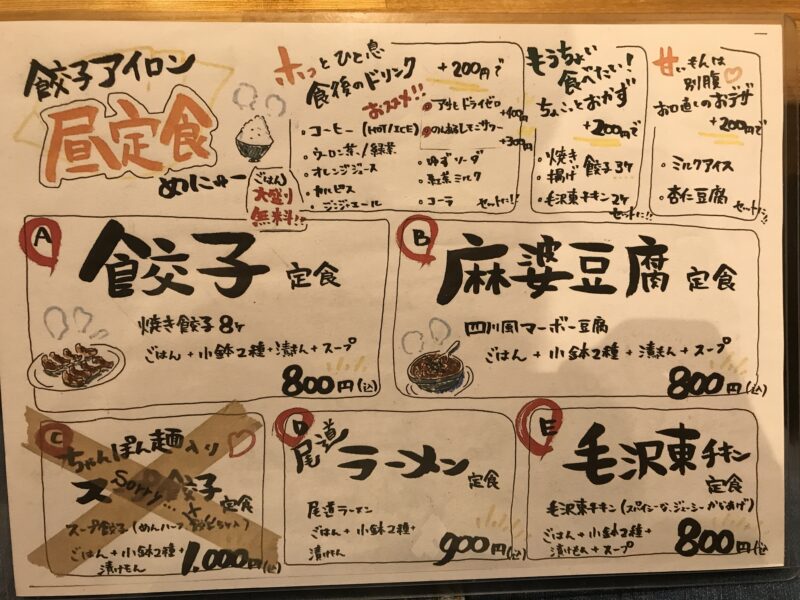 餃子アイロン
昼定食
めにゅー
ごはん
大盛り
無料!!
ホッとひと息
食後のドリンク
+200円で
おススメ!!
・コーヒー (HOT/ICE)
・ウーロン茶/緑茶
・オレンジジュース
・カルピス
・ジンジャエール
アサヒドライゼロ
+100円
のんある
サワー
+300円
・ゆずソーダ
・紅茶ミルク
・コーラ
セットに!!
もうちょい
食べたい!
ちょこっとおかず
+200円で
・焼き
・揚げ 餃子3ヶ
・毛沢東チキン2ヶ
セットに!!
甘いもんは
別腹♡
お口直しのおデザ
+200円で
・ミルクアイス
・杏仁豆腐
セットに!!
A
餃子 定食
焼き餃子8ヶ
ごはん+小鉢2種+漬もん+スープ
800円(込)
B
麻婆豆腐 定食
四川風マーボー豆腐
ごはん+小鉢2種+漬もん+スープ
800円(込)
C
ちゃんぽん麺入り♡
スープ餃子 定食
Sorry...
スープ餃子(めんハーフ
ごはん+小鉢2種+
漬けもん
1,000円(込)
D
尾道ラーメン 定食
尾道ラーメン
ごはん+小鉢2種+
漬けもん
900円(込)
E
毛沢東チキン 定食
毛沢東チキン(スパイシーな、ジューシーからあげ)
ごはん+小鉢2種+
漬けもん+スープ
800円(込)